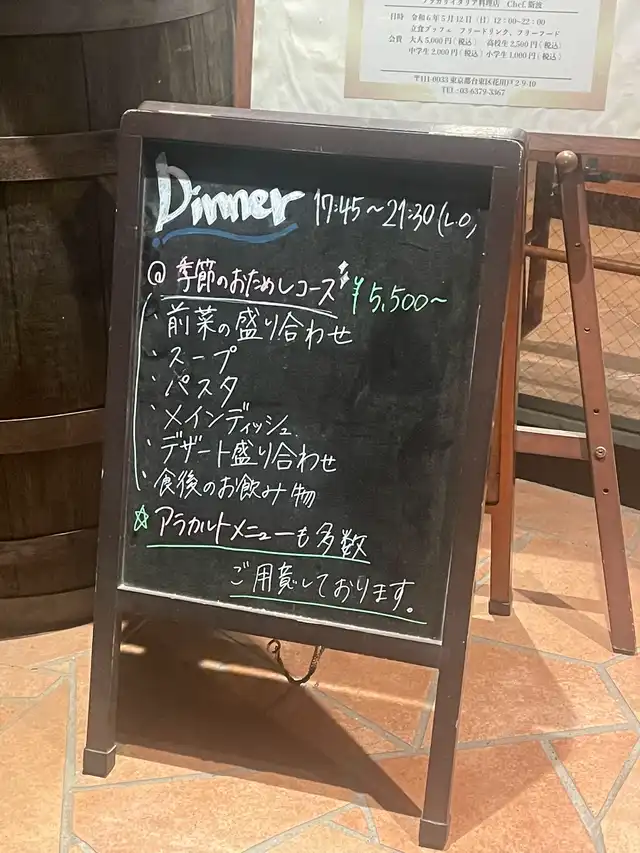 ブラカリイタリア料理店 Chef.斯波
日時 令和6年5月12日(日)12:00~22:00
立食ブッフェ フリードリンク、フリーフード
会費 大人5,000円(税込) 高校生2,500円(税込)
中学生2,000円(税込)小学生1,000円(税込)
〒111-0033 東京都台東区花川戸2-9-10
TEL:03-6379-3367
Dinner 17:45~21:30(L.O)
@ 季節のおためしコース ¥5,500~
・前菜の盛り合わせ
・スープ
・パスタ
・メインディッシュ
・デザート盛り合わせ
・食後のお飲み物
☆アラカルトメニューも多数
ご用意しております。